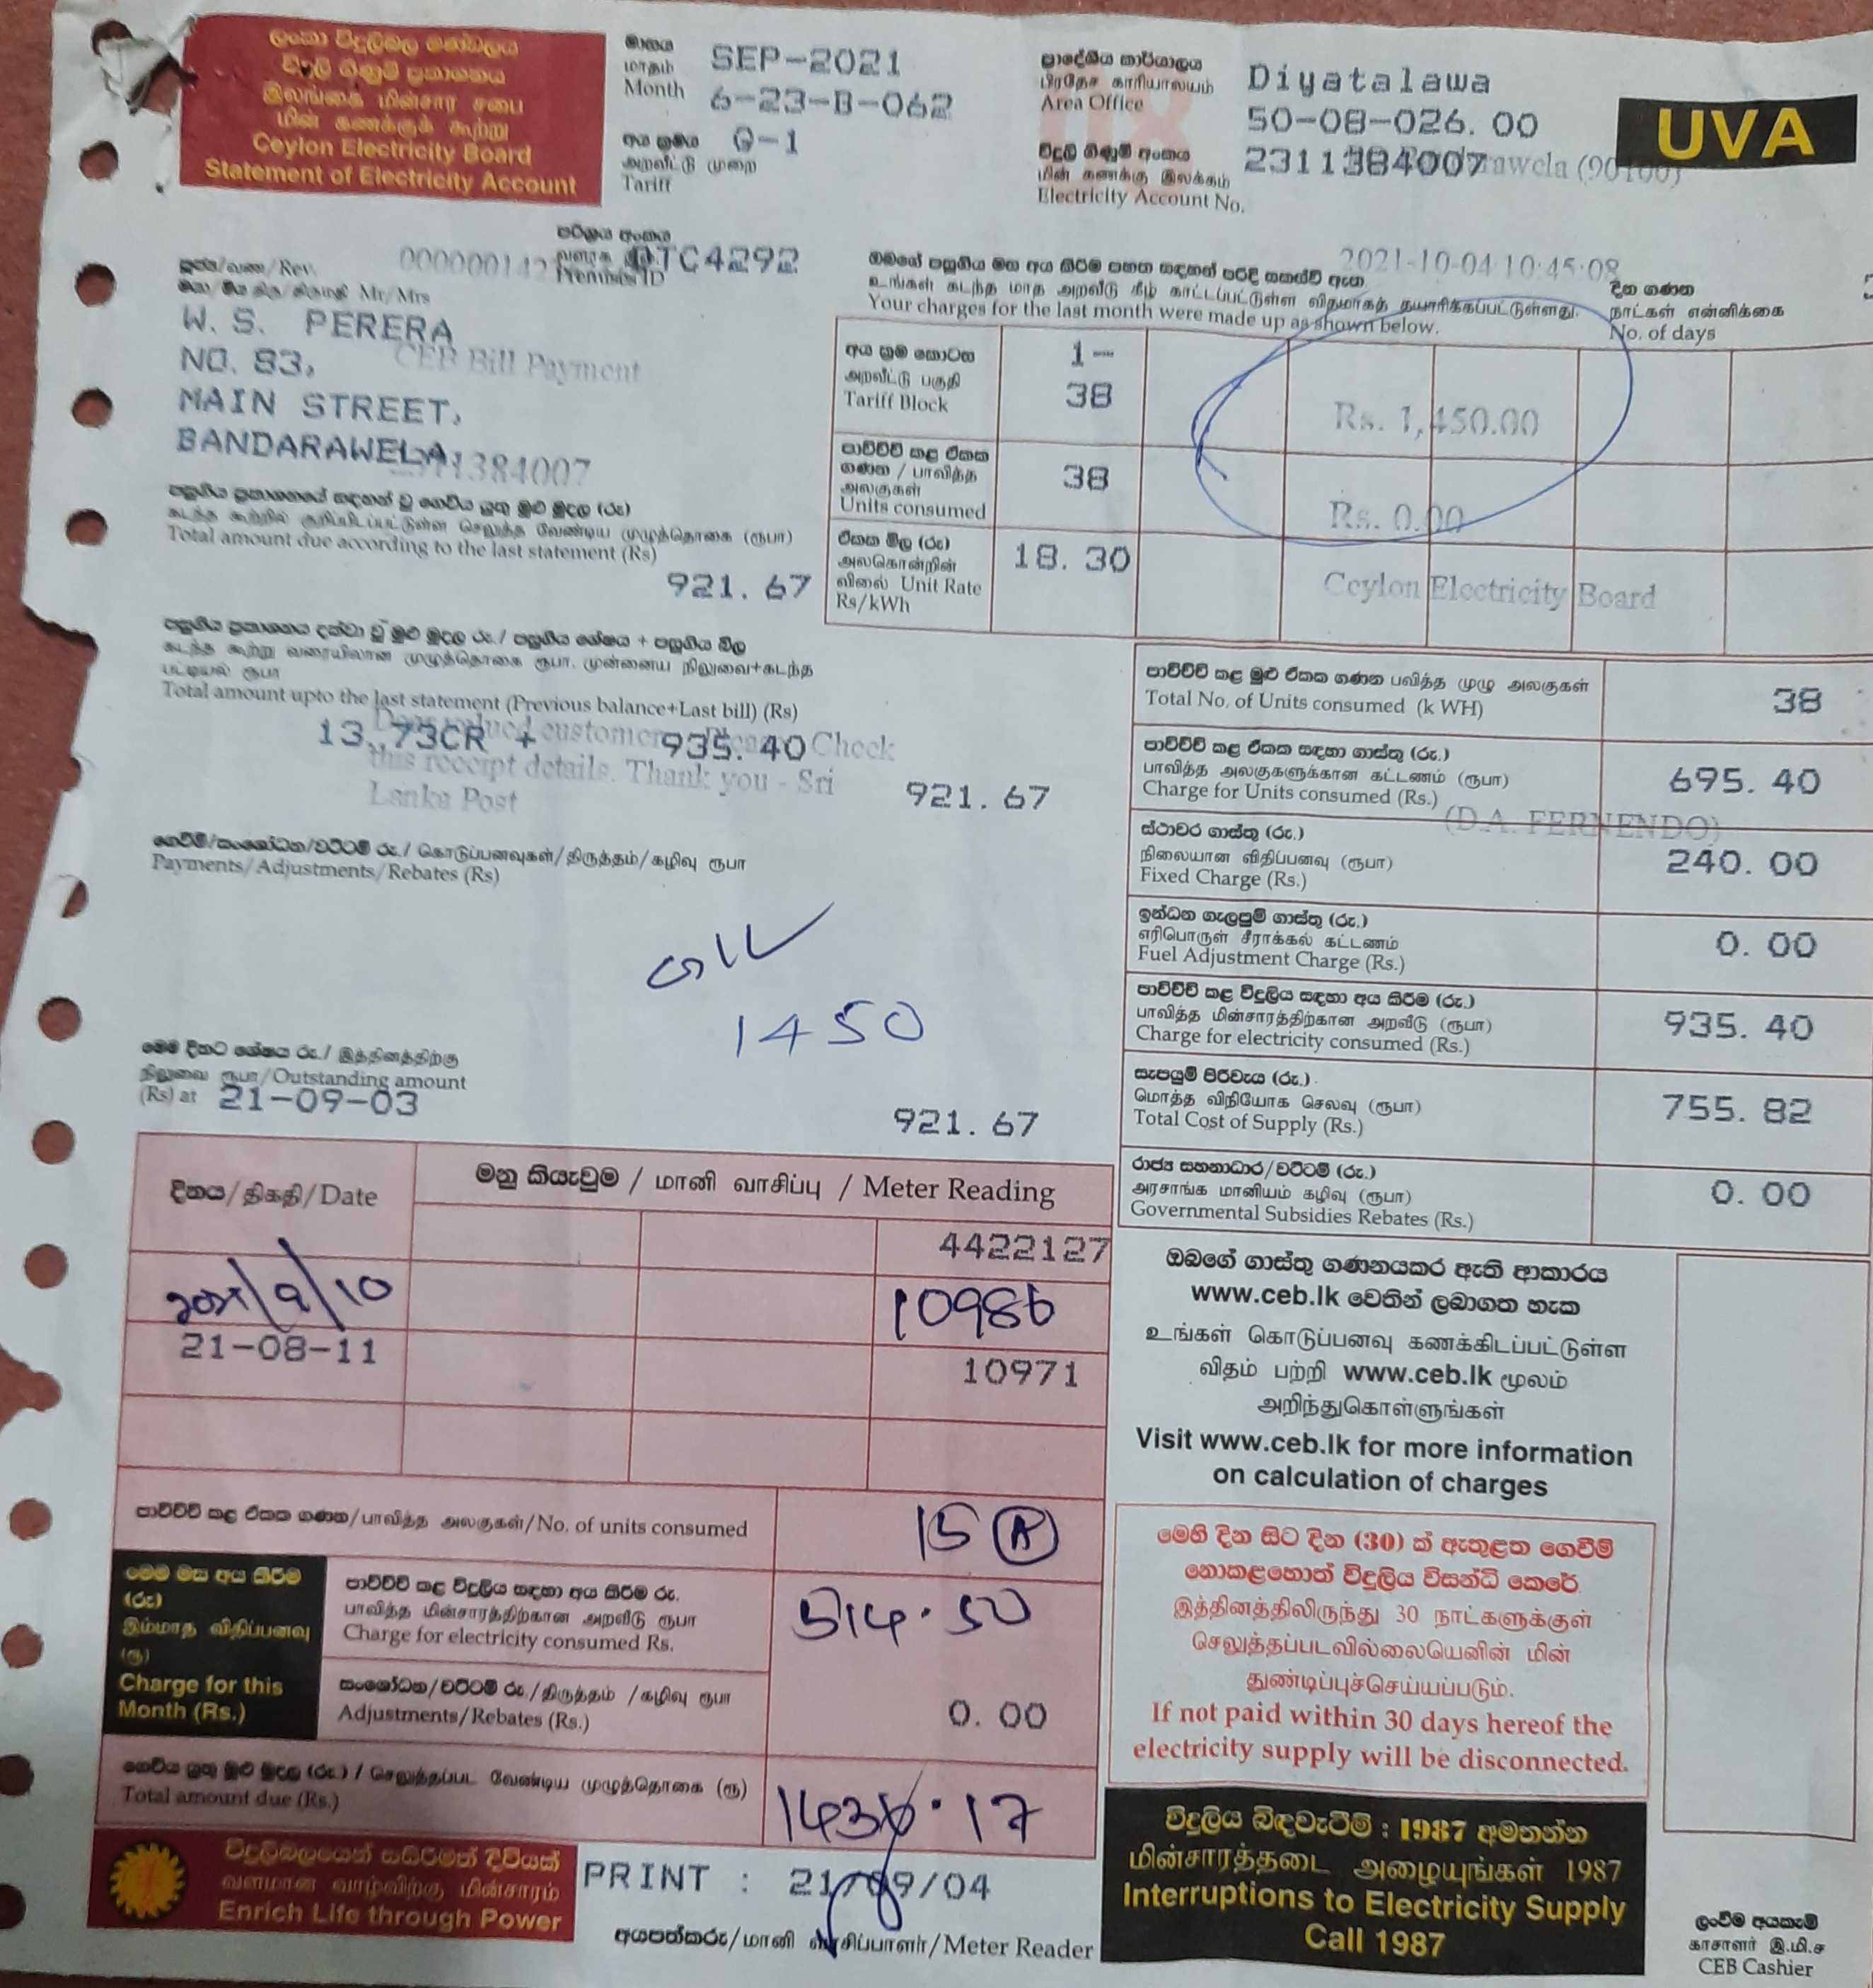 ලංකා විදුලිබල මණ්ඩලය
විදුලි ගිණුම් ප්‍රකාශනය
இலங்கை மின்சார சபை
மின் கணக்குக் கூற்று
Ceylon Electricity Board
Statement of Electricity Account
මාසය
மாதம்
Month
SEP-2021
6-23-B-062
අය ක්‍රමය
அறவீட்டு முறை
Tariff
G-1
ප්‍රාදේශීය කාර්යාලය
பிரதேச காரியாலயம்
Area Office
Diyatalawa
50-08-026. 00
විදුලි ගිණුම් අංකය
மின் கணக்கு இலக்கம்
Electricity Account No.
2311384007
rawela (90100)
UVA
පූජ්‍ය/வண/Rev.
Mr/Mrs
000000142
පරිශ්‍රය අංකය
Premises ID
TC4292
W. S. PERERA
NO. 83,
MAIN STREET,
BANDARAWELA
CEB Bill Payment
11384007
2021-10-04 10:45:08
ඔබගේ පසුගිය මස අය කිරීම් පහත සඳහන් පරිදි සකස්වී ඇත
உங்கள் கடந்த மாத அறவீடு கீழ் காட்டப்பட்டுள்ள விதமாகத் தயாரிக்கப்பட்டுள்ளது.
Your charges for the last month were made up as shown below.
දින ගණන
நாட்கள் எண்ணிக்கை
No. of days
අය ක්‍රම කොටස
அறவீட்டு பகுதி
Tariff Block
1-
38
Rs. 1,450.00
පාවිච්චි කළ ඒකක
ගණන / பாவித்த
அலகுகள்
Units consumed
38
Rs. 0.00
ඒකක මිල (රු)
அலகொன்றின்
விலை Unit Rate
Rs/kWh
18. 30
Ceylon Electricity Board
පසුගිය ප්‍රකාශනයේ සඳහන් වූ ගෙවිය යුතු මුළු මුදල (රු)
கடந்த கூற்றில் குறிப்பிடப்பட்டுள்ள செலுத்த வேண்டிய முழுத்தொகை (ரூபா)
Total amount due according to the last statement (Rs)
921. 67
පසුගිය ප්‍රකාශනය දක්වා වූ මුළු මුදල රු./ පසුගිය ශේෂය + පසුගිය බිල
கடந்த கூற்று வரையிலான முழுத்தொகை ரூபா. முன்னைய நிலுவை+கடந்த
பட்டியல் ரூபா
Total amount upto the last statement (Previous balance+Last bill) (Rs)
13. 73CR + 935. 40
customer Check
this receipt details. Thank you - Sri
Lanka Post
921. 67
ගෙවීම්/සංශෝධන/වට්ටම් රු./ கொடுப்பனவுகள்/திருத்தம்/கழிவு ரூபா
Payments/Adjustments/Rebates (Rs)
1450
මෙම දිනට ශේෂය රු./ இத்தினத்திற்கு
நிலுவை ரூபா/Outstanding amount
(Rs) at 21-09-03
921. 67
පාවිච්චි කළ මුළු ඒකක ගණන பவித்த முழு அலகுகள்
Total No. of Units consumed (k WH)
38
පාවිච්චි කළ ඒකක සඳහා ගාස්තු (රු.)
பாவித்த அலகுகளுக்கான கட்டணம் (ரூபா)
Charge for Units consumed (Rs.)
695. 40
(D.A. FERNENDO)
ස්ථාවර ගාස්තු (රු.)
நிலையான விதிப்பனவு (ரூபா)
Fixed Charge (Rs.)
240. 00
ඉන්ධන ගැලපුම් ගාස්තු (රු.)
எரிபொருள் சீராக்கல் கட்டணம்
Fuel Adjustment Charge (Rs.)
0. 00
පාවිච්චි කළ විදුලිය සඳහා අය කිරීම (රු.)
பாவித்த மின்சாரத்திற்கான அறவீடு (ரூபா)
Charge for electricity consumed (Rs.)
935. 40
සැපයුම් පිරිවැය (රු.)
மொத்த விநியோக செலவு (ரூபா)
Total Cost of Supply (Rs.)
755. 82
රාජ්‍ය සහනාධාර/වට්ටම් (රු.)
அரசாங்க மானியம் கழிவு (ரூபா)
Governmental Subsidies Rebates (Rs.)
0. 00
දිනය/திகதி/Date
මනු කියැවුම / மானி வாசிப்பு / Meter Reading
4422127
2021/9/10
10986
21-08-11
10971
පාවිච්චි කළ ඒකක ගණන/பாவித்த அலகுகள்/No. of units consumed
15 A
මෙම මස අය කිරීම්
(රු)
இம்மாத விதிப்பனவு
(ரூ)
Charge for this
Month (Rs.)
පාවිච්චි කළ විදුලිය සඳහා අය කිරීම රු.
பாவித்த மின்சாரத்திற்கான அறவீடு ரூபா
Charge for electricity consumed Rs.
514.50
සංශෝධන/වට්ටම් රු./திருத்தம் /கழிவு ரூபா
Adjustments/Rebates (Rs.)
0. 00
ගෙවිය යුතු මුළු මුදල (රු.) / செலுத்தப்பட வேண்டிய முழுத்தொகை (ரூ)
Total amount due (Rs.)
1436.17
විදුලිබලයෙන් සපිරිමත් දිවියක්
வளமான வாழ்விற்கு மின்சாரம்
Enrich Life through Power
PRINT : 21/09/04
අයපත්කරු/மானி வாசிப்பாளர்/Meter Reader
ඔබගේ ගාස්තු ගණනයකර ඇති ආකාරය
www.ceb.lk වෙතින් ලබාගත හැක
உங்கள் கொடுப்பனவு கணக்கிடப்பட்டுள்ள
விதம் பற்றி www.ceb.lk மூலம்
அறிந்துகொள்ளுங்கள்
Visit www.ceb.lk for more information
on calculation of charges
මෙහි දින සිට දින (30) ක් ඇතුළත ගෙවීම්
නොකළහොත් විදුලිය විසන්ධි කෙරේ.
இத்தினத்திலிருந்து 30 நாட்களுக்குள்
செலுத்தப்படவில்லையெனின் மின்
துண்டிப்புச்செய்யப்படும்.
If not paid within 30 days hereof the
electricity supply will be disconnected.
විදුලිය බිඳවැටීම් : 1987 අමතන්න
மின்சாரத்தடை அழையுங்கள் 1987
Interruptions to Electricity Supply
Call 1987
ලංවිම අයකැමි
காசாளர் இ.மி.ச
CEB Cashier